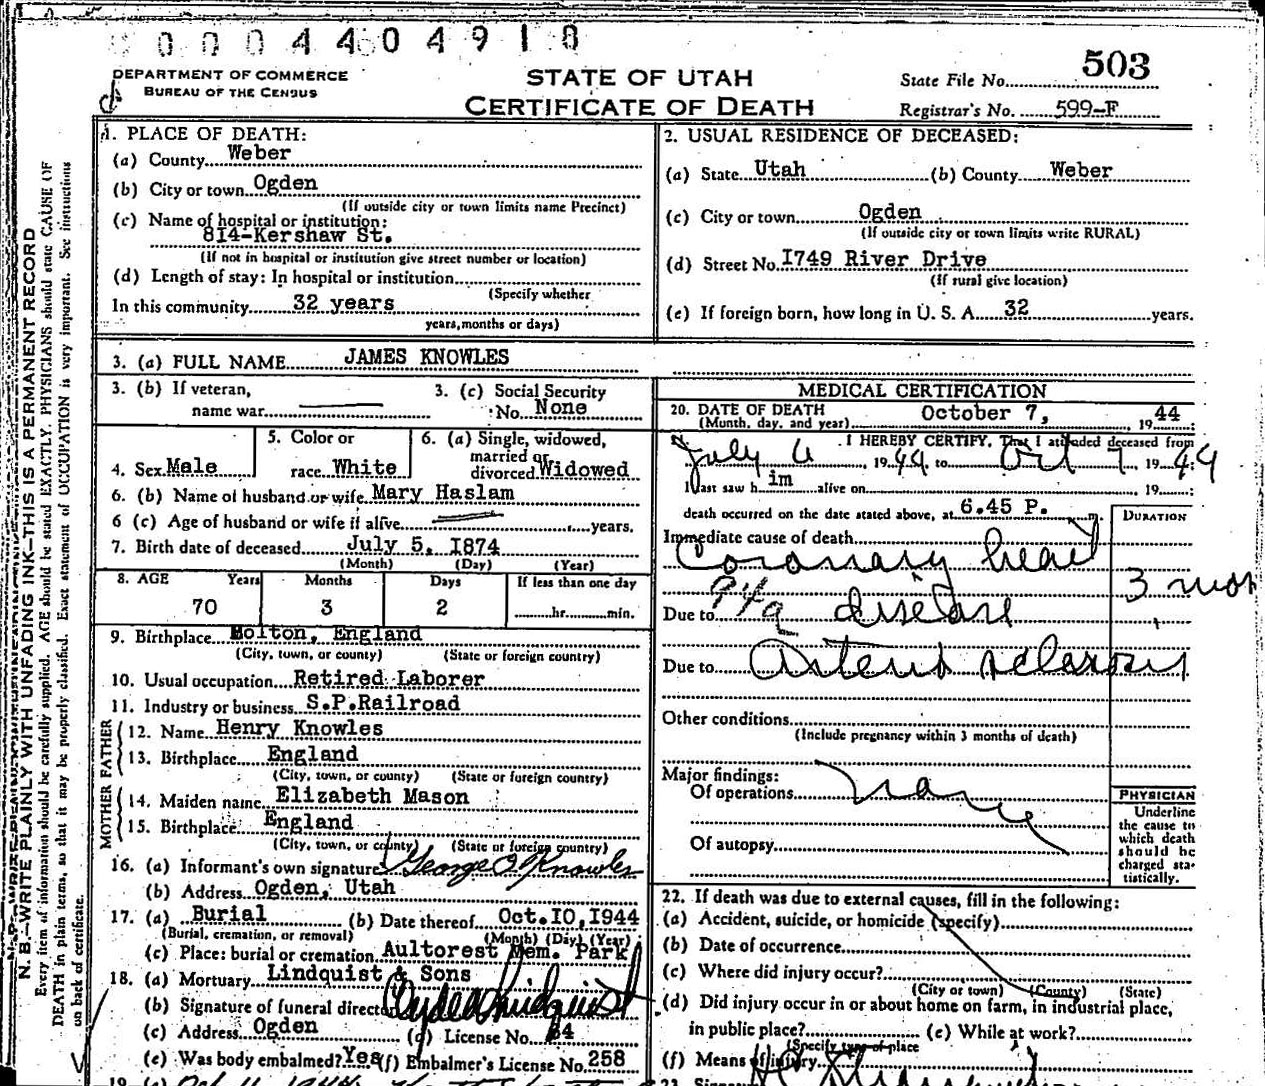 0004404910
DEPARTMENT OF COMMERCE
BUREAU OF THE CENSUS
STATE OF UTAH
CERTIFICATE OF DEATH
State File No. 503
Registrar's No. 599-F
N. B.—WRITE PLAINLY WITH UNFADING INK—THIS IS A PERMANENT RECORD
Every item of information should be carefully supplied. AGE should be stated EXACTLY. PHYSICIANS should state CAUSE OF
DEATH in plain terms, so that it may be properly classified. Exact statement of OCCUPATION is very important. See instructions
on back of certificate.
1. PLACE OF DEATH:
(a) County Weber
(b) City or town Ogden
(If outside city or town limits name Precinct)
(c) Name of hospital or institution:
814-Kershaw St.
(If not in hospital or institution give street number or location)
(d) Length of stay: In hospital or institution
(Specify whether
In this community 32 years
years, months or days)
2. USUAL RESIDENCE OF DECEASED:
(a) State Utah (b) County Weber
(c) City or town Ogden
(If outside city or town limits write RURAL)
(d) Street No. I749 River Drive
(If rural give location)
(e) If foreign born, how long in U. S. A. 32 years.
3. (a) FULL NAME JAMES KNOWLES
3. (b) If veteran,
name war
3. (c) Social Security
No. None
4. Sex Male
5. Color or
race White
6. (a) Single, widowed,
married or
divorced Widowed
6. (b) Name of husband or wife Mary Haslam
6 (c) Age of husband or wife if alive years.
7. Birth date of deceased July 5, I874
(Month) (Day) (Year)
8. AGE Years Months Days If less than one day
70 3 2 hr. min.
9. Birthplace Bolton, England
(City, town, or county) (State or foreign country)
10. Usual occupation Retired Laborer
11. Industry or business S.P.Railroad
FATHER
12. Name Henry Knowles
13. Birthplace England
(City, town, or county) (State or foreign country)
MOTHER
14. Maiden name Elizabeth Mason
15. Birthplace England
(City, town, or county) (State or foreign country)
16. (a) Informant's own signature George O Knowles
(b) Address Ogden, Utah
17. (a) Burial (b) Date thereof Oct.I0,I944
(Burial, cremation, or removal) (Month) (Day) (Year)
(c) Place: burial or cremation Aultorest Mem. Park
18. (a) Mortuary Lindquist & Sons
(b) Signature of funeral director Clyde Lindquist
(c) Address Ogden (d) License No. 64
(e) Was body embalmed? Yes (f) Embalmer's License No. 258
19. (a)
MEDICAL CERTIFICATION
20. DATE OF DEATH October 7, 1944
(Month, day, and year)
I HEREBY CERTIFY, That I attended deceased from
July 6, 1944 to Oct 7 1944
I last saw him alive on 19
death occurred on the date stated above, at 6.45 P. m.
DURATION
Immediate cause of death
Coronary heart
94a disease 3 mon
Due to
Due to Arterio sclerosis
Other conditions
(Include pregnancy within 3 months of death)
Major findings:
Of operations none
Of autopsy
PHYSICIAN
Underline
the cause to
which death
should be
charged sta-
tistically.
22. If death was due to external causes, fill in the following:
(a) Accident, suicide, or homicide (specify)
(b) Date of occurrence
(c) Where did injury occur?
(City or town) (County) (State)
(d) Did injury occur in or about home on farm, in industrial place,
in public place? (e) While at work?
(Specify type of place
(f) Means of injury